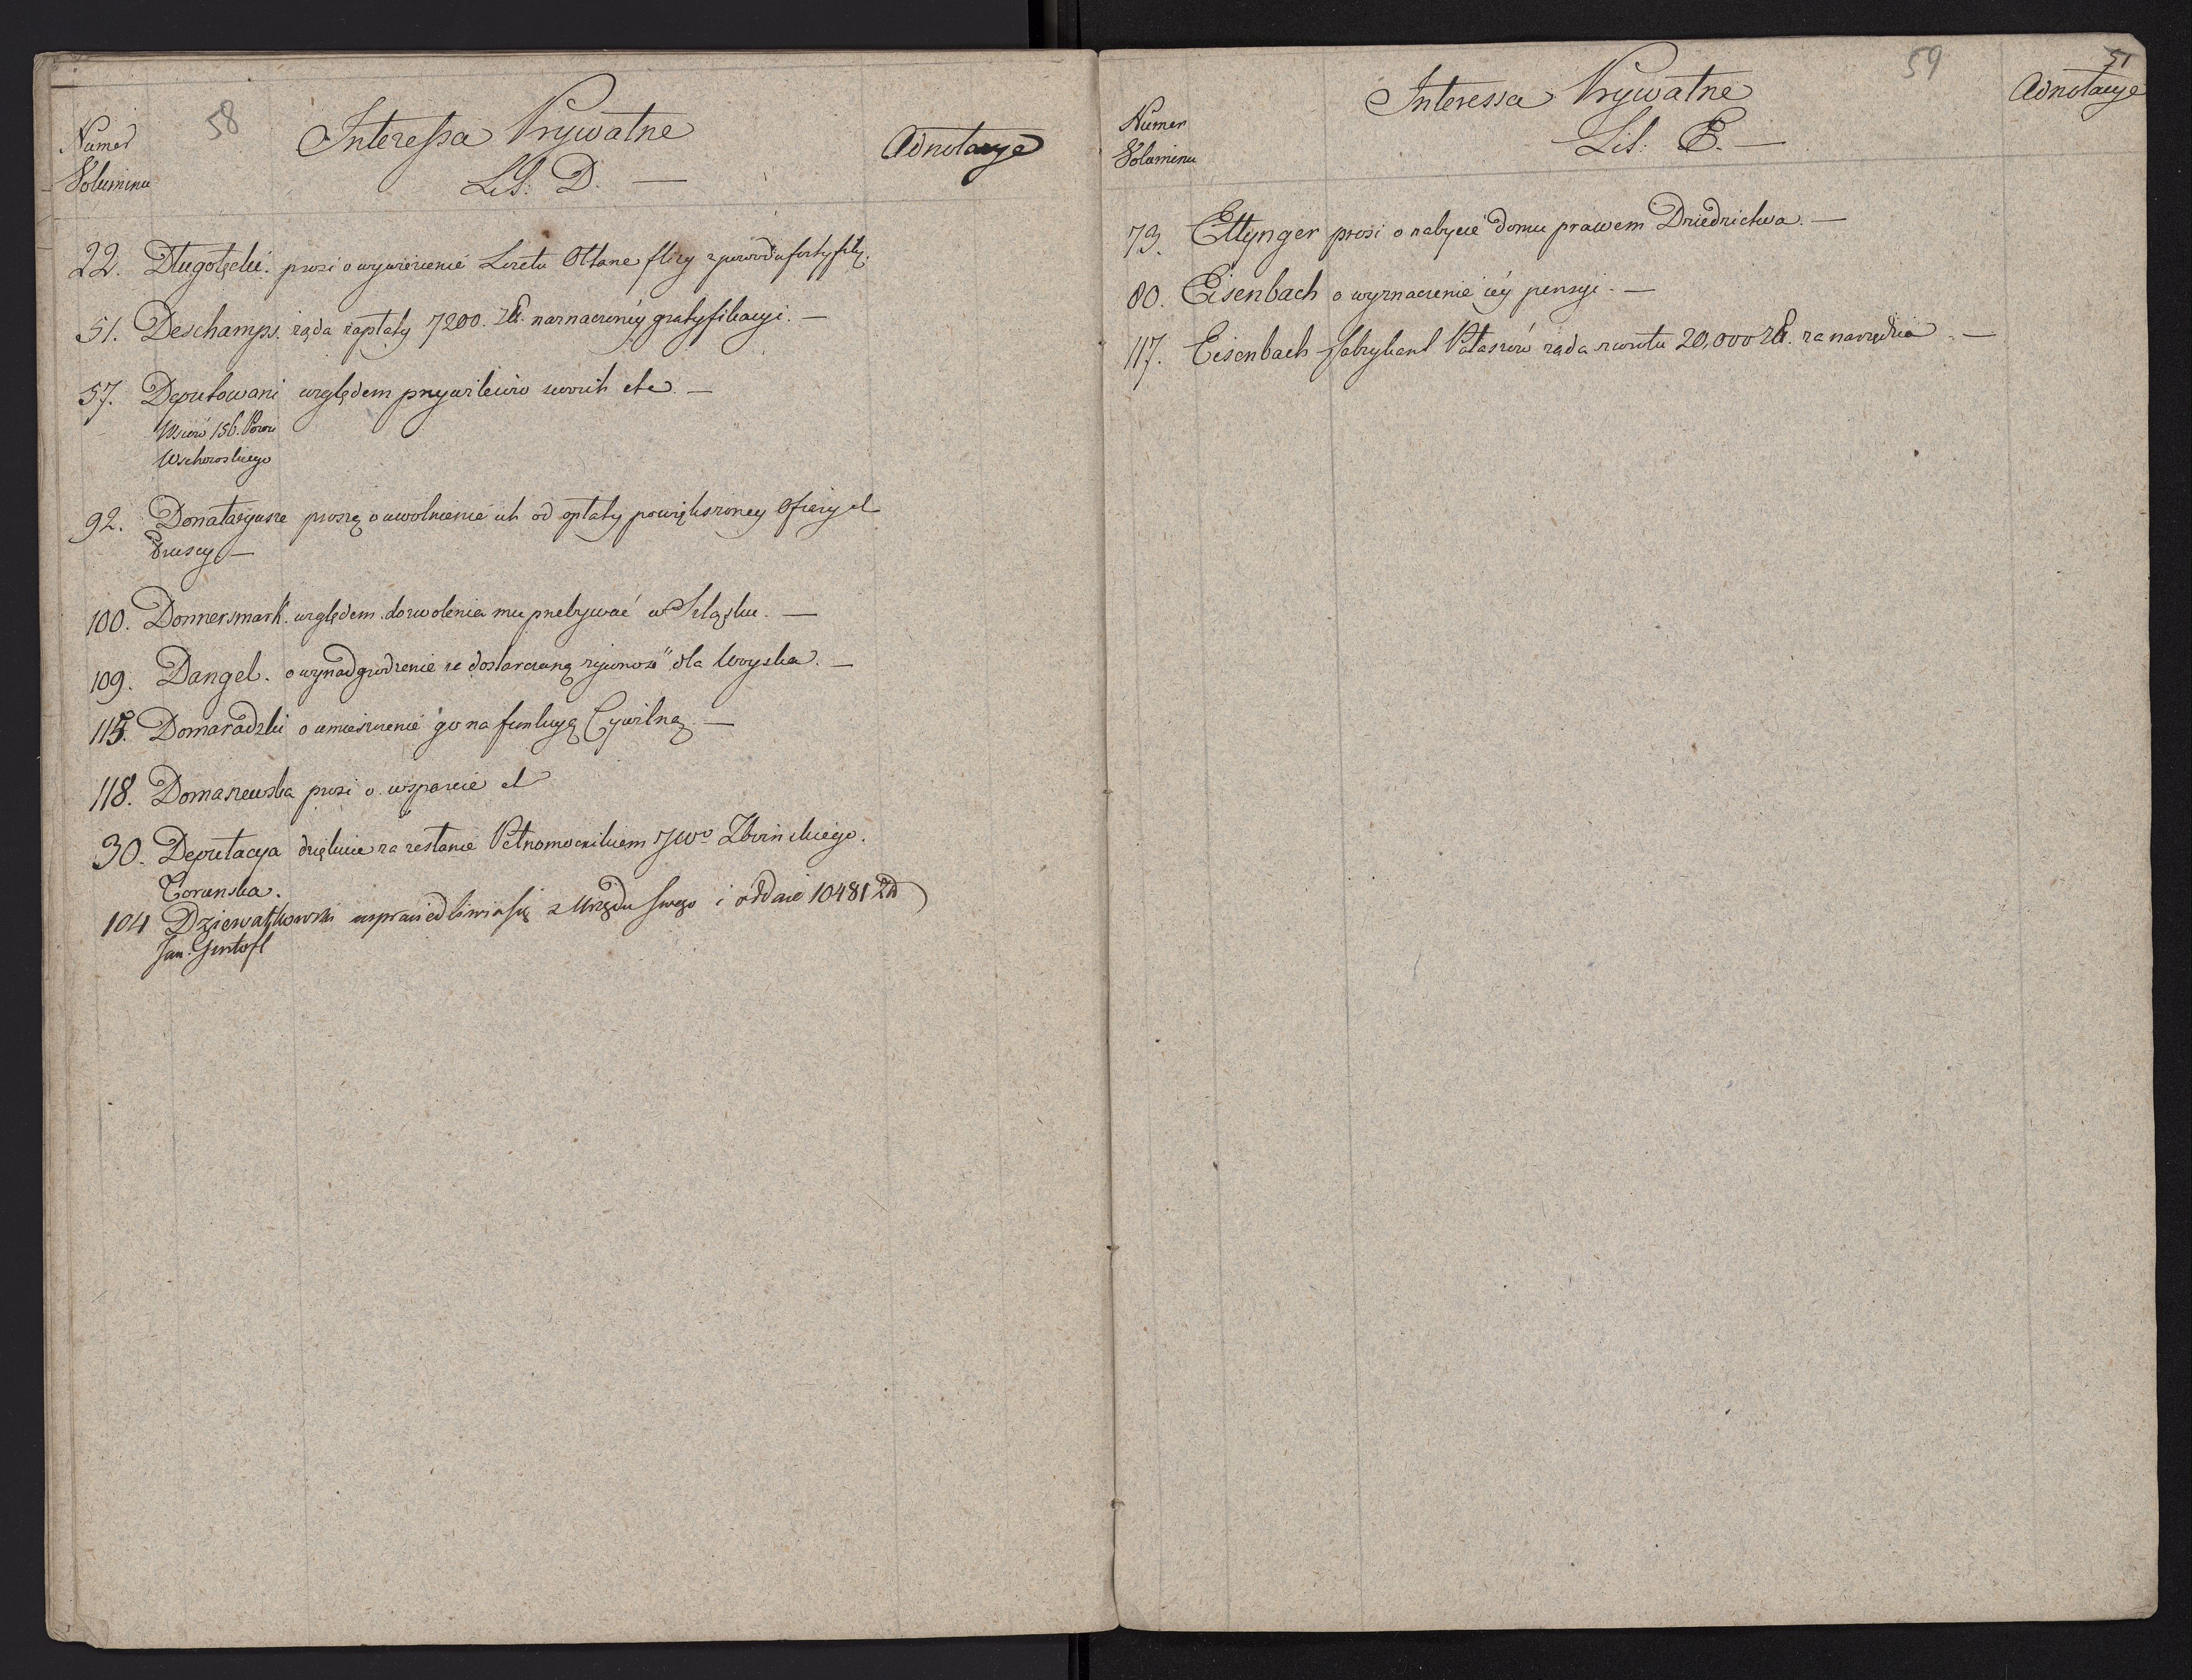 58
Numer
Voluminu
Interessa Prywatne
Lit: D. —
Adnotacye
22. Długołęcki prosi o wywiezienie
51. Deschamps. żąda zapłaty 7200. Zł. naznaczonéy gratyfikacyi. —
57. Deputowani względem przywileiów swoich etc. —
Wsiów 156. Powu
Wschowskiego
92. Donataryusze proszą o uwolnienie ich od opłaty powiększoney Ofiary et
Pruscy —
100. Donnersmark. względem dozwolenia mu przebywać w Szląsku. —
109. Dangel. o wynadgrodzenie za dostarczaną żywność dla Woyska. —
115. Domaradzki o umieszczenie go na funkcyą Cywilną. —
118. Domaszewska prosi o wsparcie et
30. Deputacya dziękuie za zesłanie Pełnomocnikiem JWo Zboińskiego.
Toruńska.
104 Dziewałtowski usprawiedliwia się z Urzędu swego i oddaie 10481 Zł
Jan Gintoft
59
51
Numer
Voluminu
Interessa Prywatne
Lit: E. —
Adnotacye
73. Ettynger prosi o nabycie domu prawem Dziedzictwa. —
80. Eisenbach o wyznaczenie iéy pensyi. —
117. Eisenbach Fabrykant Pałaszów żąda zwrotu 20,000 Zł. za narzędzia. —